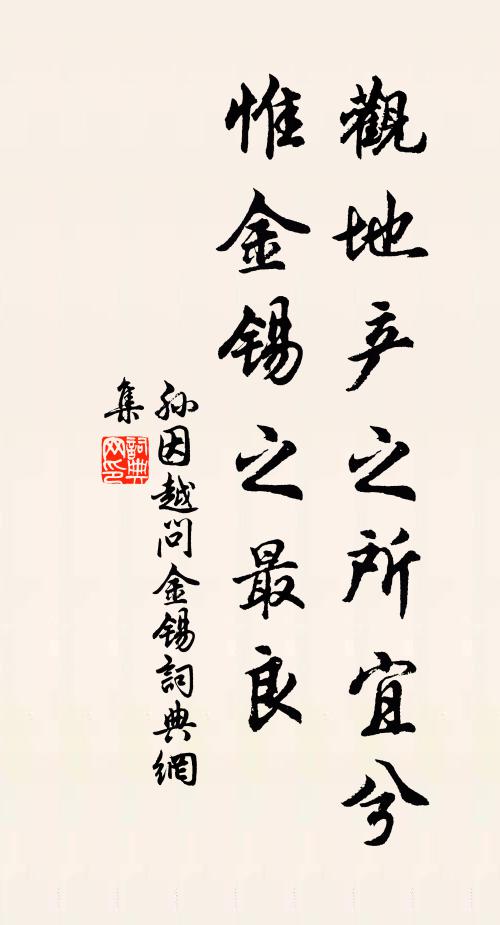 觀地产之所宜兮
惟金锡之最良
孙因越问金锡詞典網
集
詞典網印